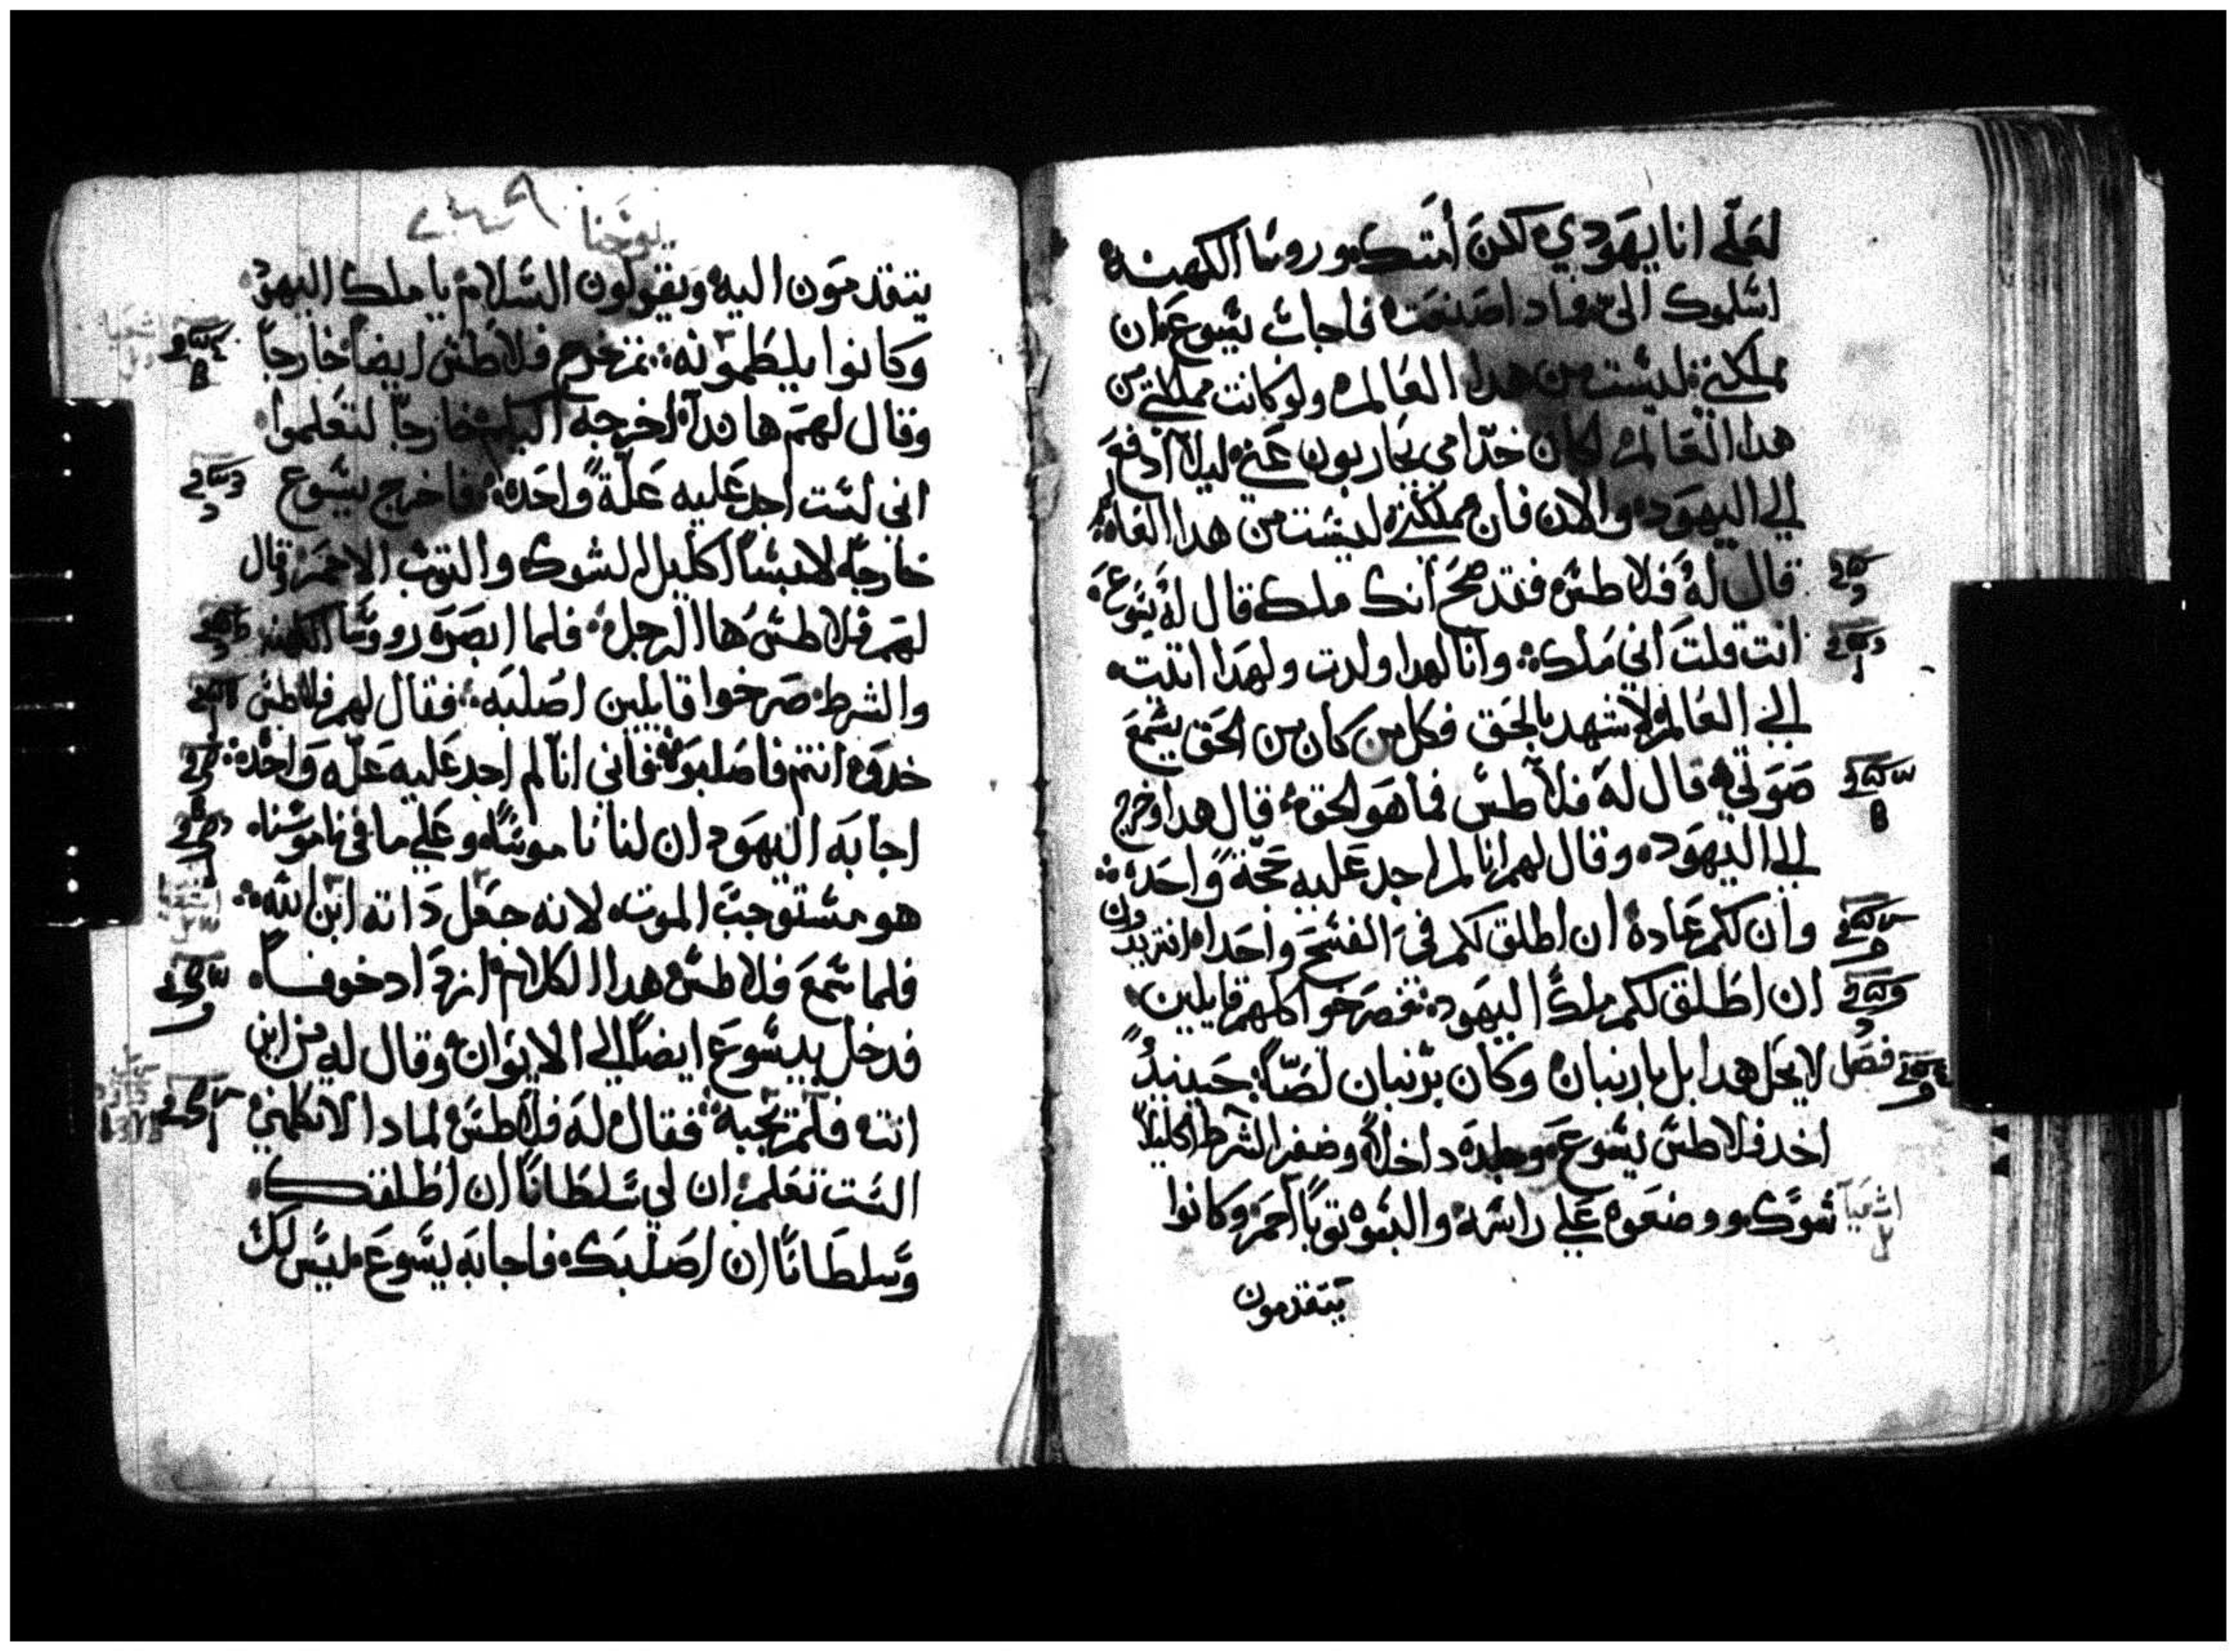 لعلّي انا يهَودي لكنَ أمتَك وروسَا الكهنة
اسَلموك اليّ ماداصَنعَت فاجابَ يسَوعَ ان
مملكتي ليسَت من هدا العَالم ولو كانت مملكتي من
هدا العَالم لكان خدّامي يحَاربون عَني ليلا ادفعَ
الي اليهَود والان فان مملكتي ليسَت من هدا العَالم
قال لهُ فلاطسَ فقد صَحَ انك ملك قال لهُ يسَوعَ
انت قلتَ اني مَلك وانا لهدا ولدت ولهَدا اتيت
الي العَالم لاشهد بالحَق فكل من كان من الحَق يسَمعَ
صَوتي قال لهَ فلاطسَ فما هَو الحق قال هدا وخرج
الي اليهَود وقال لهم انا لم اجد عَليه حجّة واحَدة
وان لكم عَادة ان اطلق لكم في الفسَحَ واحَدا افتريدون
ان اطَلق لكم ملكَ اليهَود فصَرخَوا كلهم قايلين
فصَل لا يحَل هدا بل بارنبان وكان برنبان لصَّا حَينيدً
اخد فلاطسَ يسَوعَ وجلدَه داخلاً وضفر الشرط اكليلاً
اشعيا شوكَ ووضعَوه عَلي راسَه والبسَوه توبًا احمَر وكانوا
يتقدمون
يوحَنا
يتقدموَن اليه وَيقولون السَلام يا ملك اليهوَد
وَكانوا يلطمَونه ثم خرج فلاطسَ ايضاً خارجاً
وقال لهمَ هاندا اخرجه اليكم خارجاً لتعَلموا
اني لسَت اجد عَليه عَلّةً واحَده فاخرج يسَوع
خارجًا لابسَاً اكليل الشوك والتوبَ الاحمَر وقال
لهمَ فلاطسَ ها الرجل فلما ابصَرَه روسَا الكهنه
والشرط صَرخوا قايلين اصُلبَه فقال لهم فلاطسَ
خدوَه انتم فاصَلبوَه فاني انا لم اجد عَليه عَلّه وَاحَده
اجابَه اليَهوَد ان لنا ناموسَاً وعَلي ما في ناموسَنا
هو مسَتوجبَ الموت لانه جعَل دَاته ابن الله
فلما سَمعَ فلاطسَ هدا الكلام ازدَاد خوفاً
فدخل بيسَوعَ ايضاً الي الايوان وقال له من اين
انت فلم يجَبه فقال لهَ فلاطسَ لمادا لا تكلمني
السَت تعَلم ان لي سَلطَانًا ان اطَلقك
وسَلطَانًا ان اصَلبَك فاجابَه يسَوعَ ليسَ لكَ